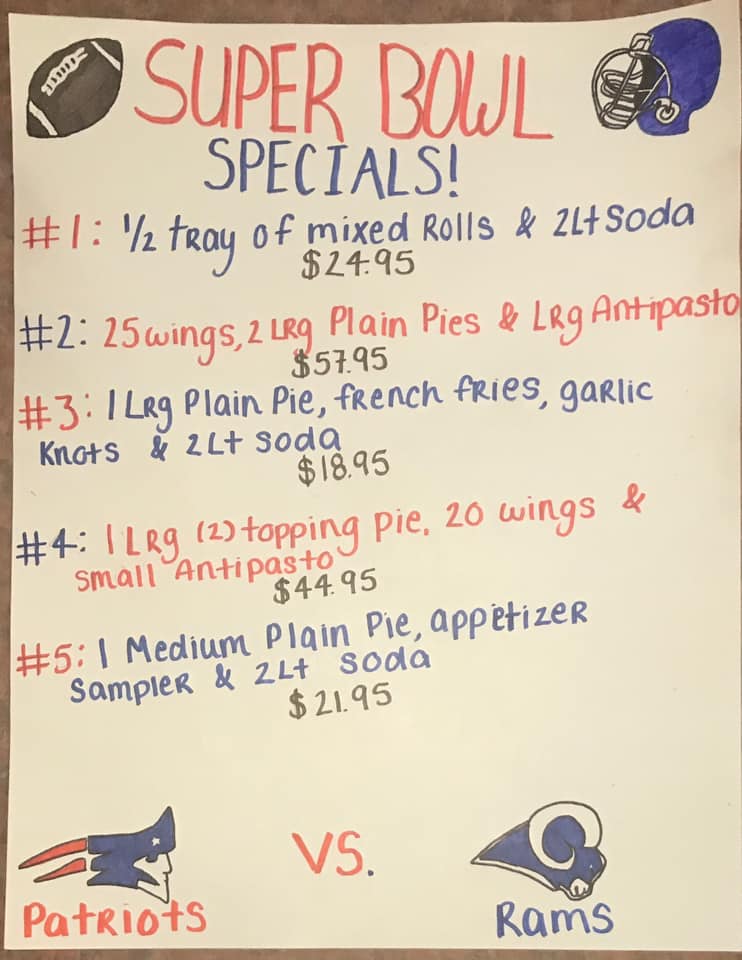 SUPER BOWL
SPECIALS!
#1: 1/2 tray of mixed Rolls & 2Lt Soda
$24.95
#2: 25 wings, 2 LRg Plain Pies & LRg Antipasto
$57.95
#3: 1 LRg Plain Pie, french fries, garlic
Knots & 2Lt soda
$18.95
#4: 1 LRg (2) topping pie, 20 wings &
small Antipasto
$44.95
#5: 1 Medium Plain Pie, appetizer
Sampler & 2Lt soda
$21.95
VS.
Patriots
Rams